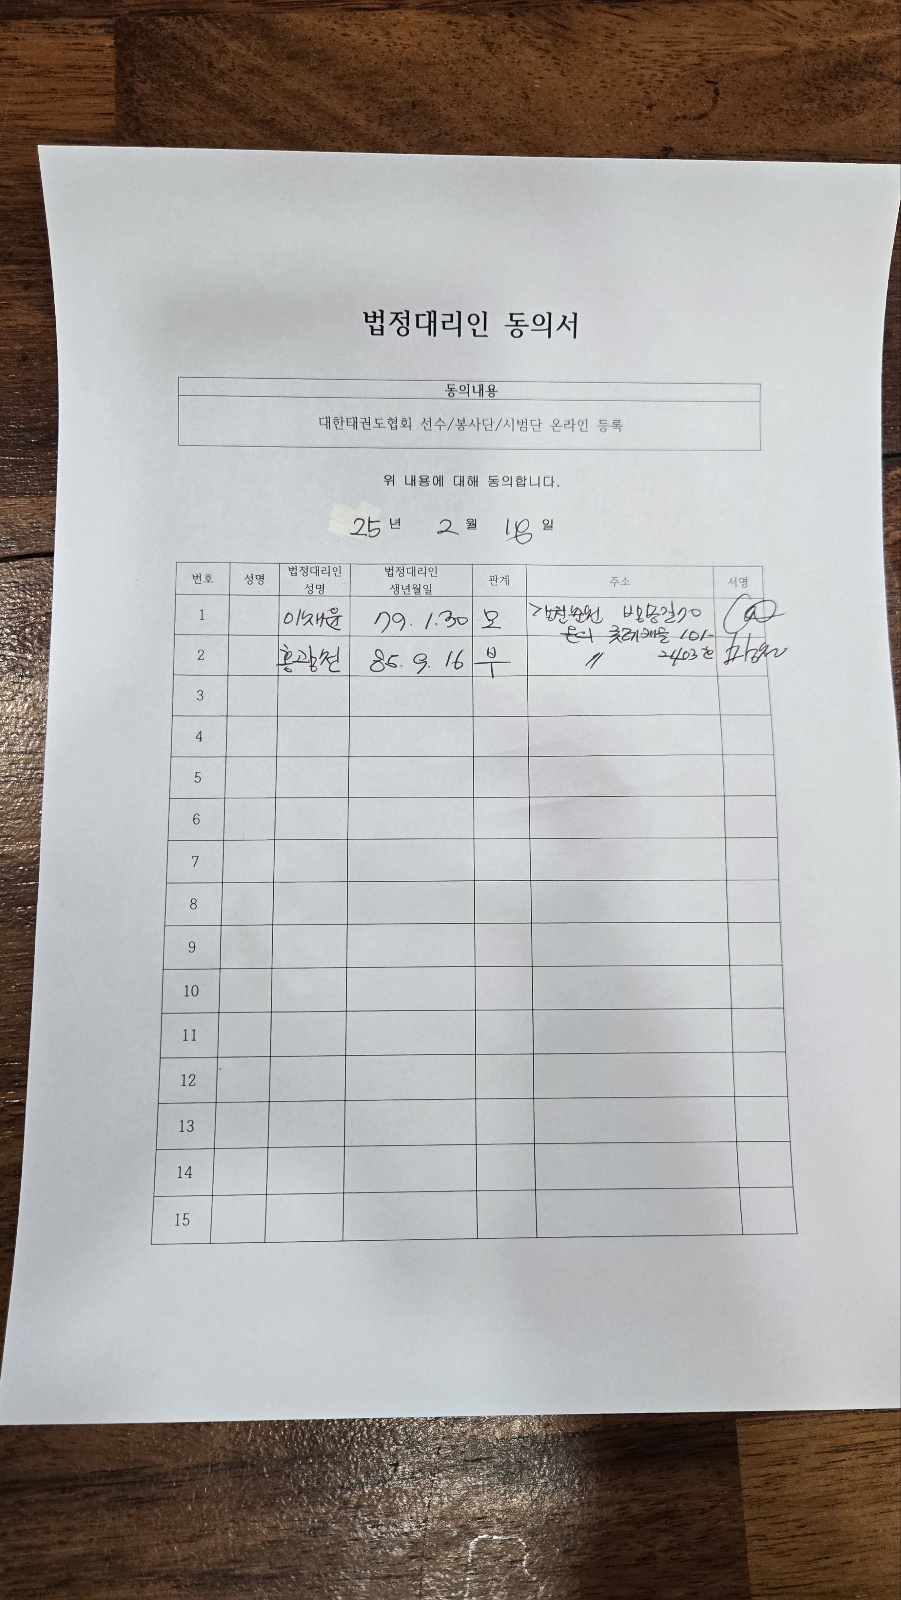 법정대리인 동의서
동의내용
대한태권도협회 선수/봉사단/시범단 온라인 등록
위 내용에 대해 동의합니다.
25 년 2 월 18 일
번호 성명 법정대리인 성명 법정대리인 생년월일 관계 주소 서명
1 이재윤 79. 1. 30 모 101-
2 홍광천 85. 9. 16 부 〃 2403호
3
4
5
6
7
8
9
10
11
12
13
14
15